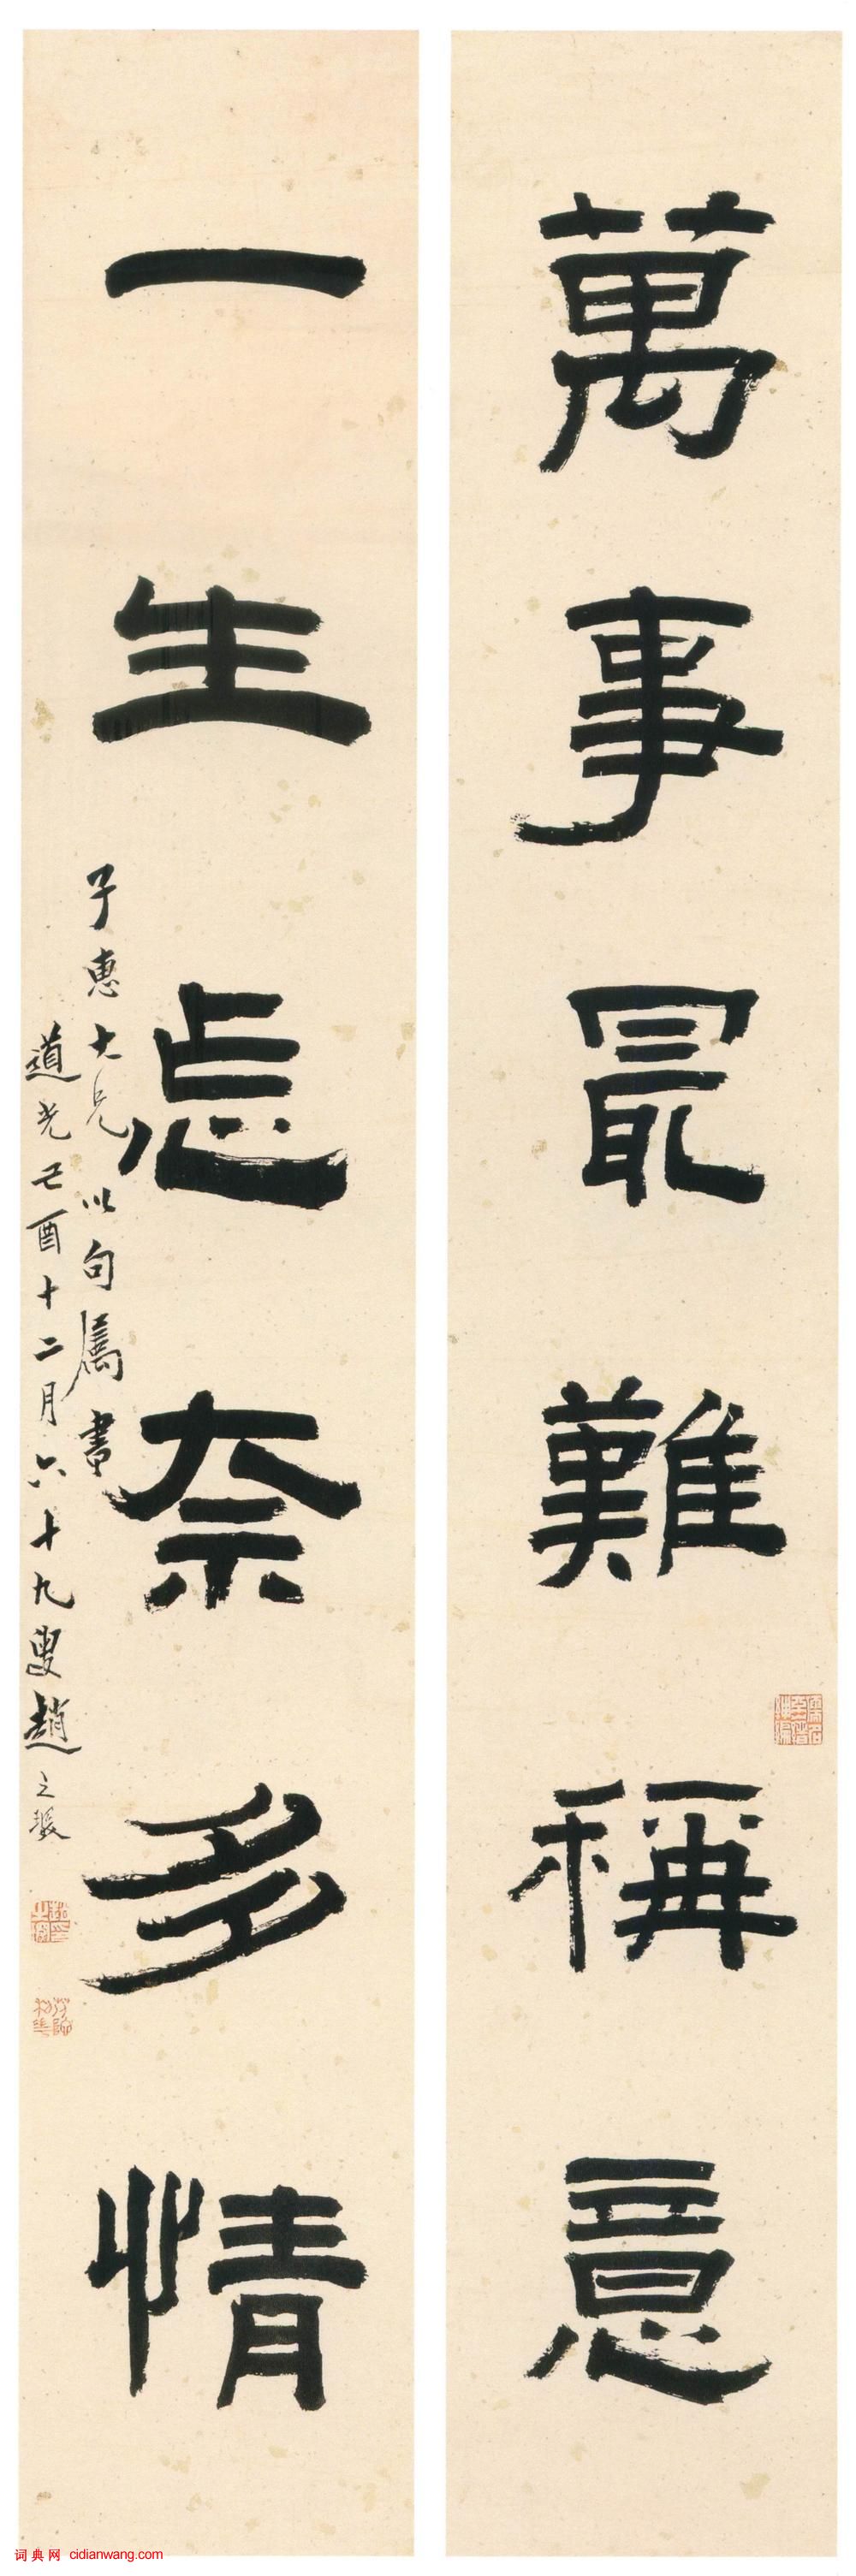 萬事最難稱意
一生怎奈多情
子惠大兄以句属書
道光己酉十二月六十九叟趙之琛
词典网 cidianwang.com